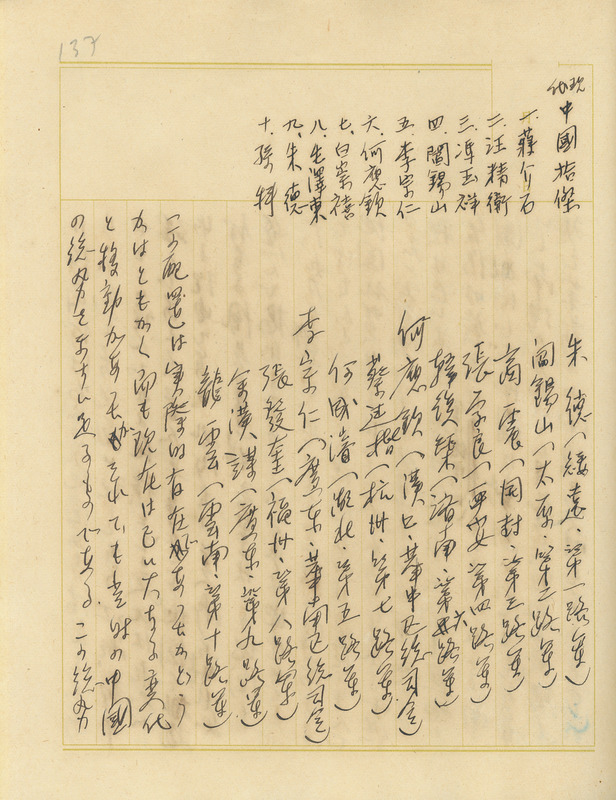 137
現代中國哲傑
一、蔣介石
二、汪精衛
三、馮玉祥
四、閻錫山
五、李宗仁
六、何應欽
七、白崇禧
八、毛澤東
九、朱德
十、孫科
朱德（綏遠・第一路軍）
閻錫山（太原・第二路軍）
商震（開封・第三路軍）
張学良（西安・第四路軍）
韓復榘（済南・第六路軍）
何應欽（漢口・華中区総司令）
蔡廷楷（杭州・第七路軍）
何成濬（湖北・第五路軍）
李宗仁（廣东・華南区総司令）
張發奎（福州・第八路軍）
余漢謀（廣东・第九路軍）
龍雲（雲南・第十路軍）
この配置は実際的存在であったかどう
かはともかく即も現在は已に大なる変化
と移動があったが それでも当时の中國
の総力をあすに足るものである。この総力